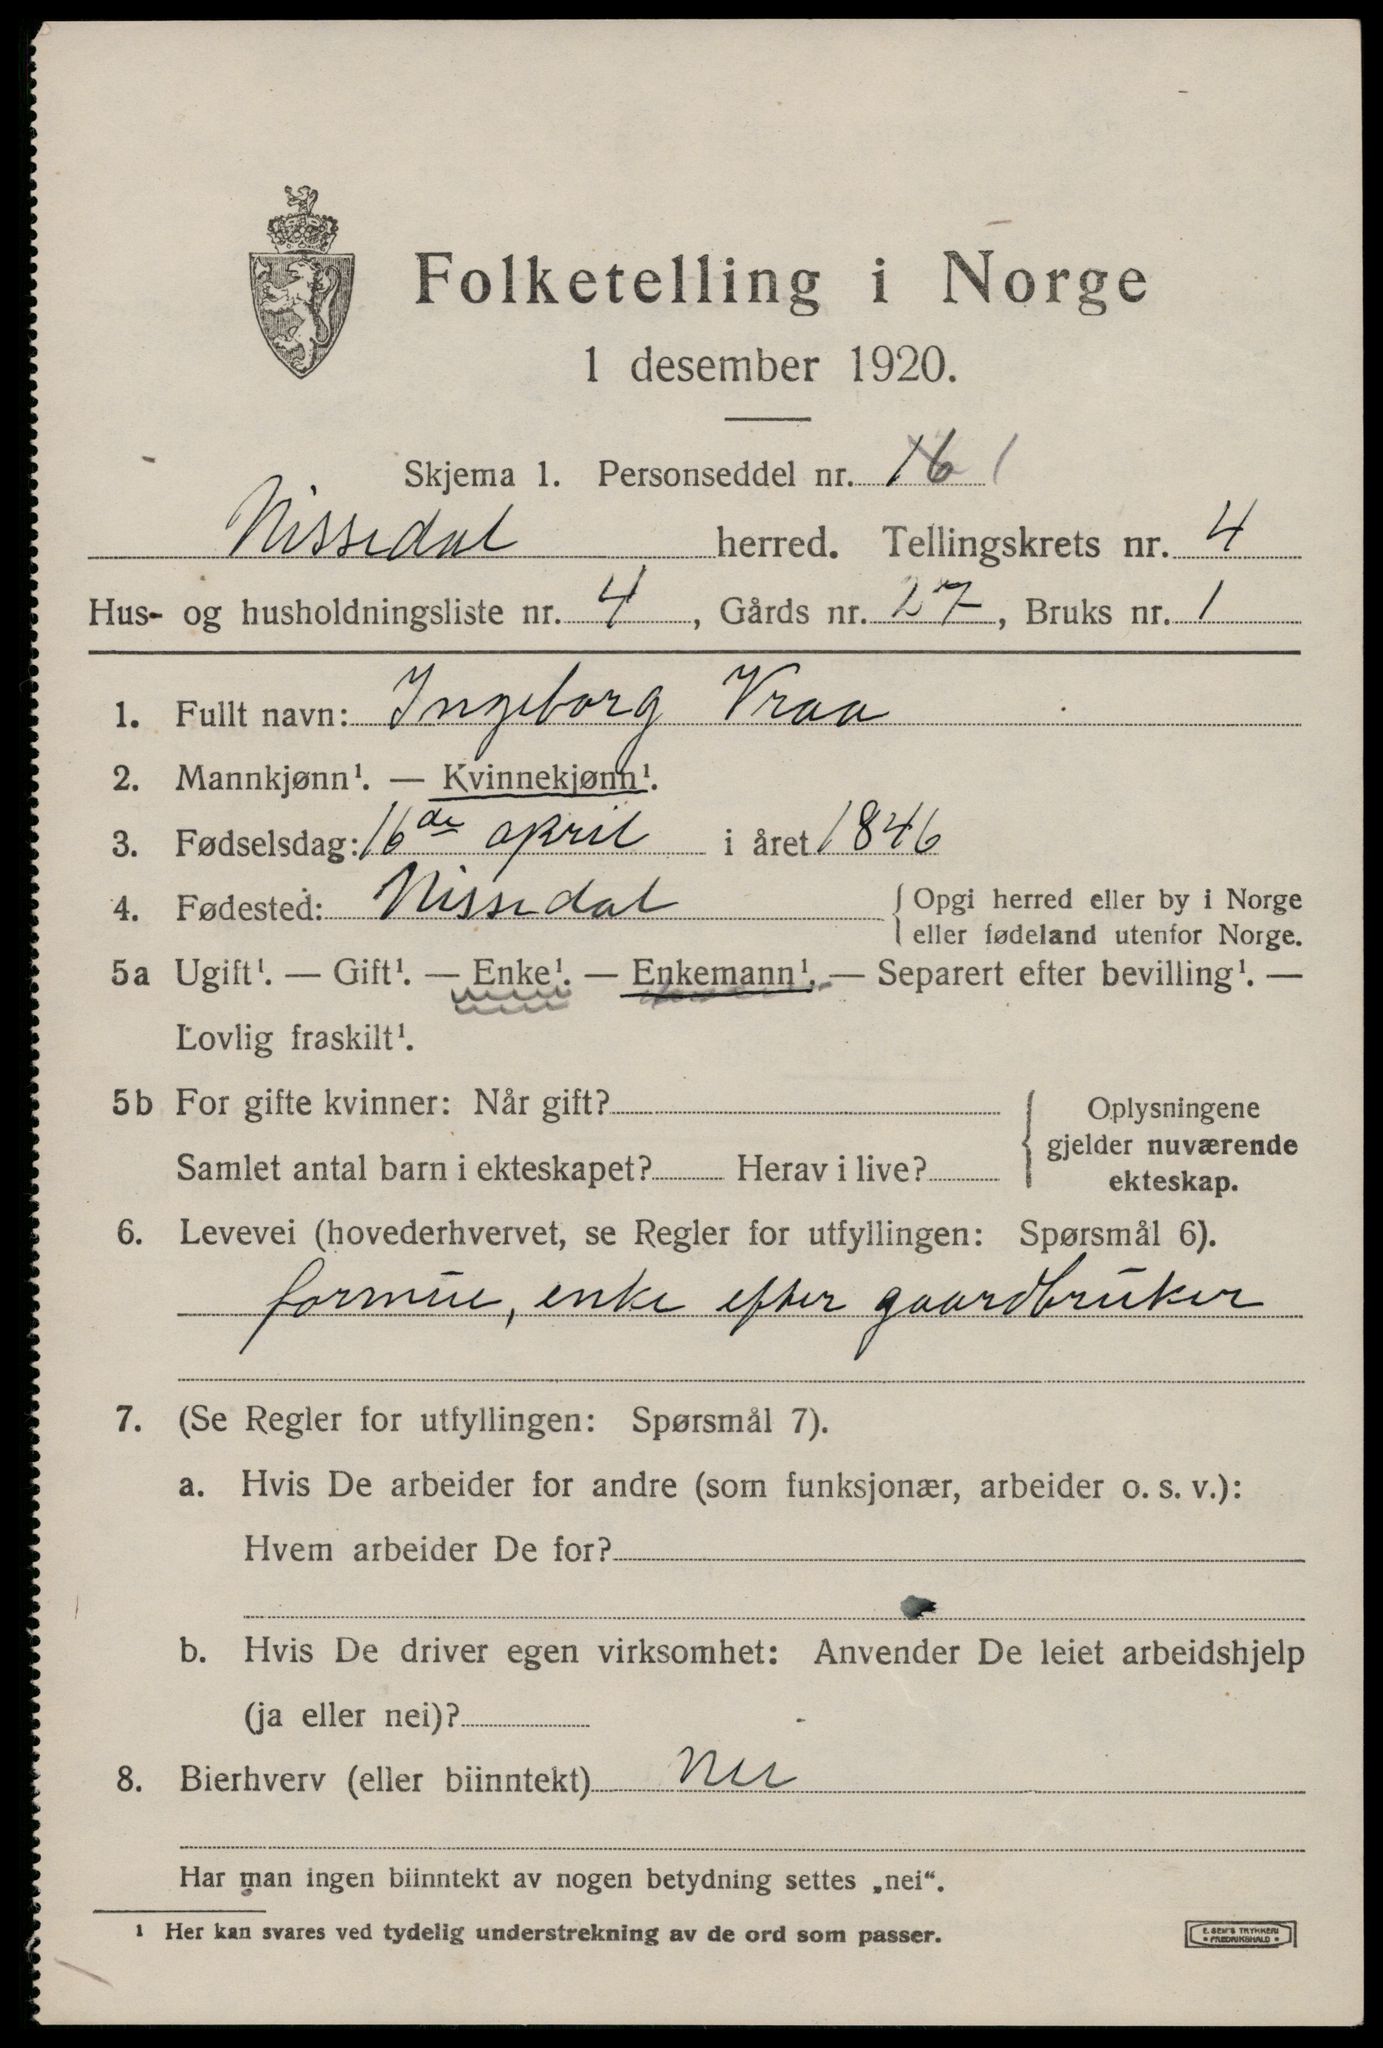 Folketelling i Norge
1 desember 1920.
Skjema 1. Personseddel nr. 16 1
Nissedal herred. Tellingskrets nr. 4
Hus- og husholdningsliste nr. 4, Gårds nr. 27, Bruks nr. 1
1. Fullt navn: Ingeborg Vraa
2. Mannkjønn¹. — Kvinnekjønn¹.
3. Fødselsdag: 16de april i året 1846
4. Fødested: Nissedal { Opgi herred eller by i Norge
eller fødeland utenfor Norge.
5a Ugift¹. — Gift¹. — Enke¹. — Enkemann¹. — Separert efter bevilling¹. —
Lovlig fraskilt¹.
5b For gifte kvinner: Når gift? { Oplysningene
gjelder nuværende
Samlet antal barn i ekteskapet? Herav i live? ekteskap.
6. Levevei (hovederhvervet, se Regler for utfyllingen: Spørsmål 6).
formue, enke efter gaardbruker
7. (Se Regler for utfyllingen: Spørsmål 7).
a. Hvis De arbeider for andre (som funksjonær, arbeider o. s. v.):
Hvem arbeider De for?
b. Hvis De driver egen virksomhet: Anvender De leiet arbeidshjelp
(ja eller nei)?
8. Bierhverv (eller biinntekt) Nei
Har man ingen biinntekt av nogen betydning settes „nei“.
¹ Her kan svares ved tydelig understrekning av de ord som passer.
E. SEM'S TRYKKERI
• FREDRIKSHALD •